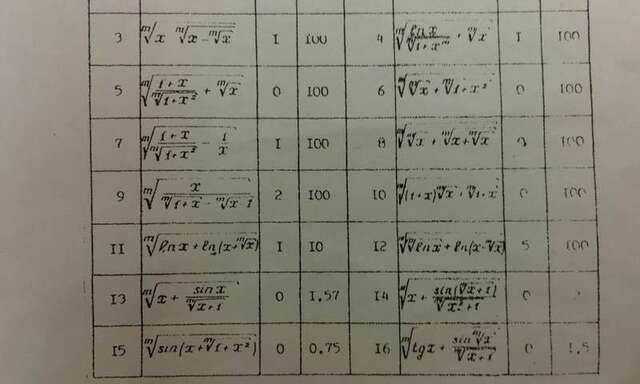 3 ᵐ√(x ᵐ√(x - ᵐ√x)) I 100 4 ᵐ√(ln x / ᵐ√(1+xᵐ) + ᵐ√x) I 100
5 ᵐ√((1+x)/ᵐ√(1+x²) + ᵐ√x) 0 100 6 ᵐ√(ᵐ√x + ᵐ√(1+x²)) 0 100
7 ᵐ√((1+x)/ᵐ√(1+x²) - 1/x) I 100 8 ᵐ√(ᵐ√x + ᵐ√(x+ᵐ√x)) 0 100
9 ᵐ√(x/(ᵐ√(1+x) - ᵐ√(x-1))) 2 100 10 ᵐ√((1+x)ᵐ√x + ᵐ√(1+x)) 0 100
II ᵐ√(ln x + ln(x+ᵐ√x)) I 10 12 ᵐ√(ᵐ√ln x + ln(x-ᵐ√x)) 5 100
13 ᵐ√(x + sin x/ᵐ√(x+1)) 0 1.57 14 ᵐ√(x + sin(ᵐ√(x+1))/ᵐ√(x²+1)) 0
15 ᵐ√(sin(x+ᵐ√(1+x²))) 0 0.75 16 ᵐ√(tg x + sin ᵐ√x/ᵐ√(x+1)) 0 1.5